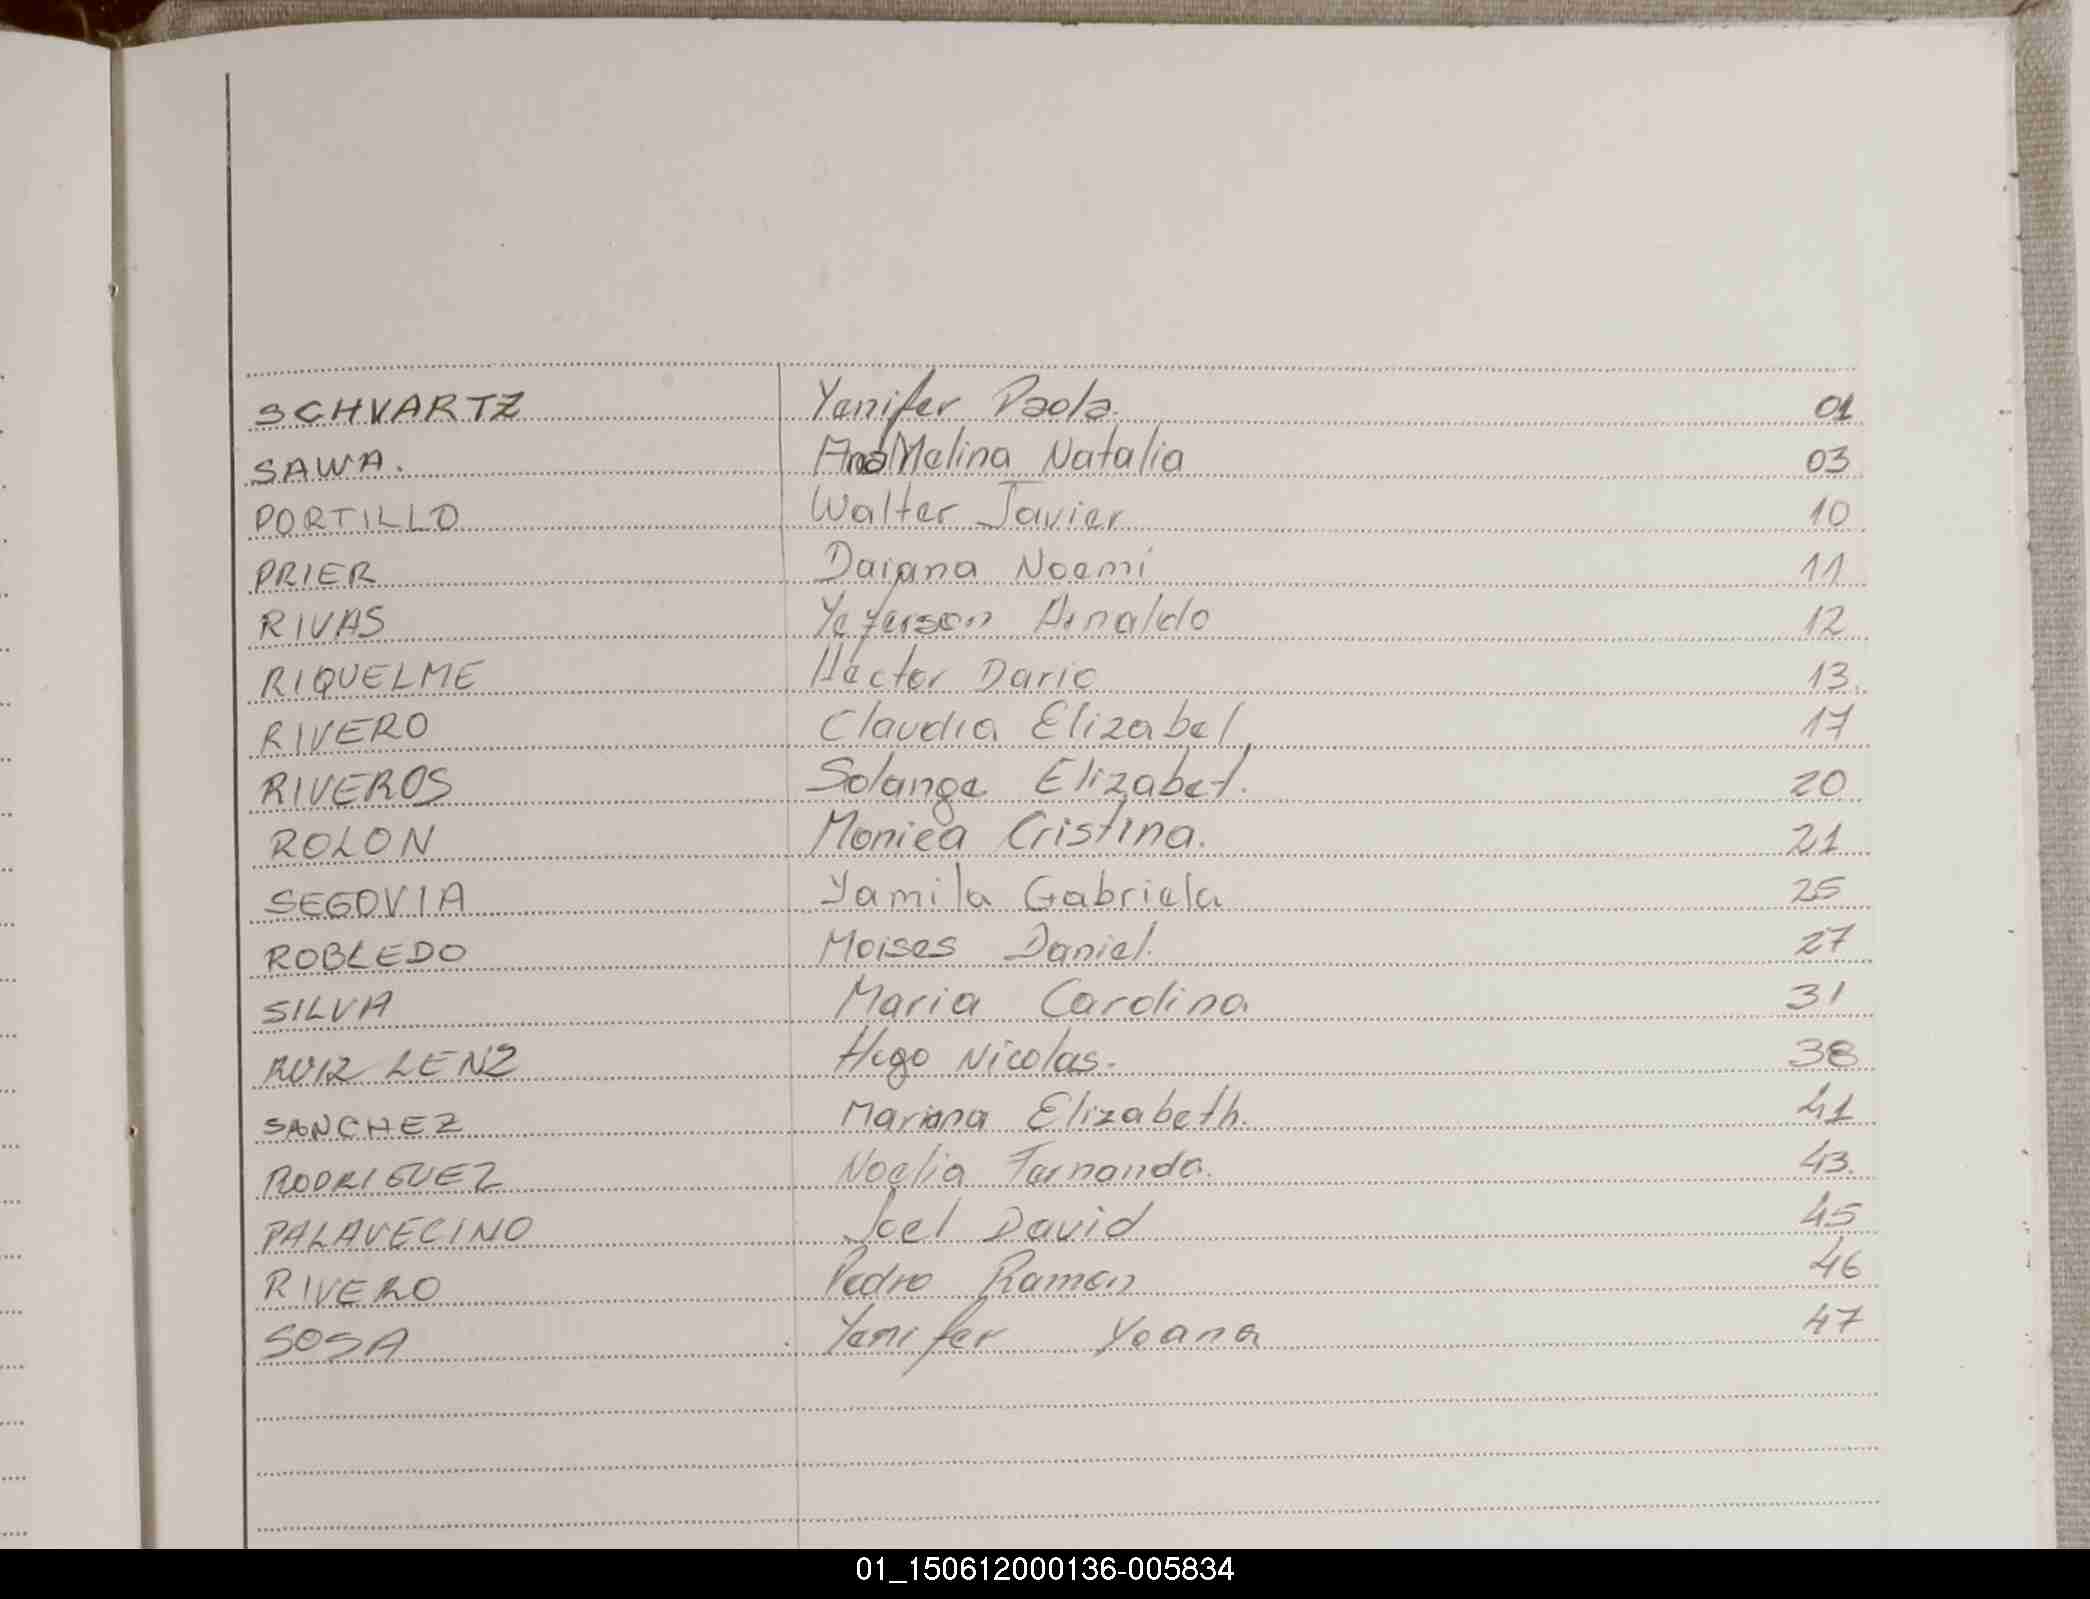 SCHVARTZ Yenifer Paola. 01
SAWA. Ana Melina Natalia 03
PORTILLO Walter Javier 10
PRIER Daiana Noemi 11
RIVAS Yeferson Arnaldo 12
RIQUELME Hector Dario 13
RIVERO Claudia Elizabet 17
RIVEROS Solange Elizabet. 20
ROLON Monica Cristina. 21
SEGOVIA Yamila Gabriela 25
ROBLEDO Moises Daniel. 27
SILVA Maria Carolina 31
RUIZ LENZ Hugo Nicolas. 38
SANCHEZ Mariana Elizabeth. 41
RODRIGUEZ Noelia Fernanda. 43
PALAVECINO Joel David 45
RIVERO Pedro Ramon 46
SOSA Yenifer Yoana 47
01_150612000136-005834